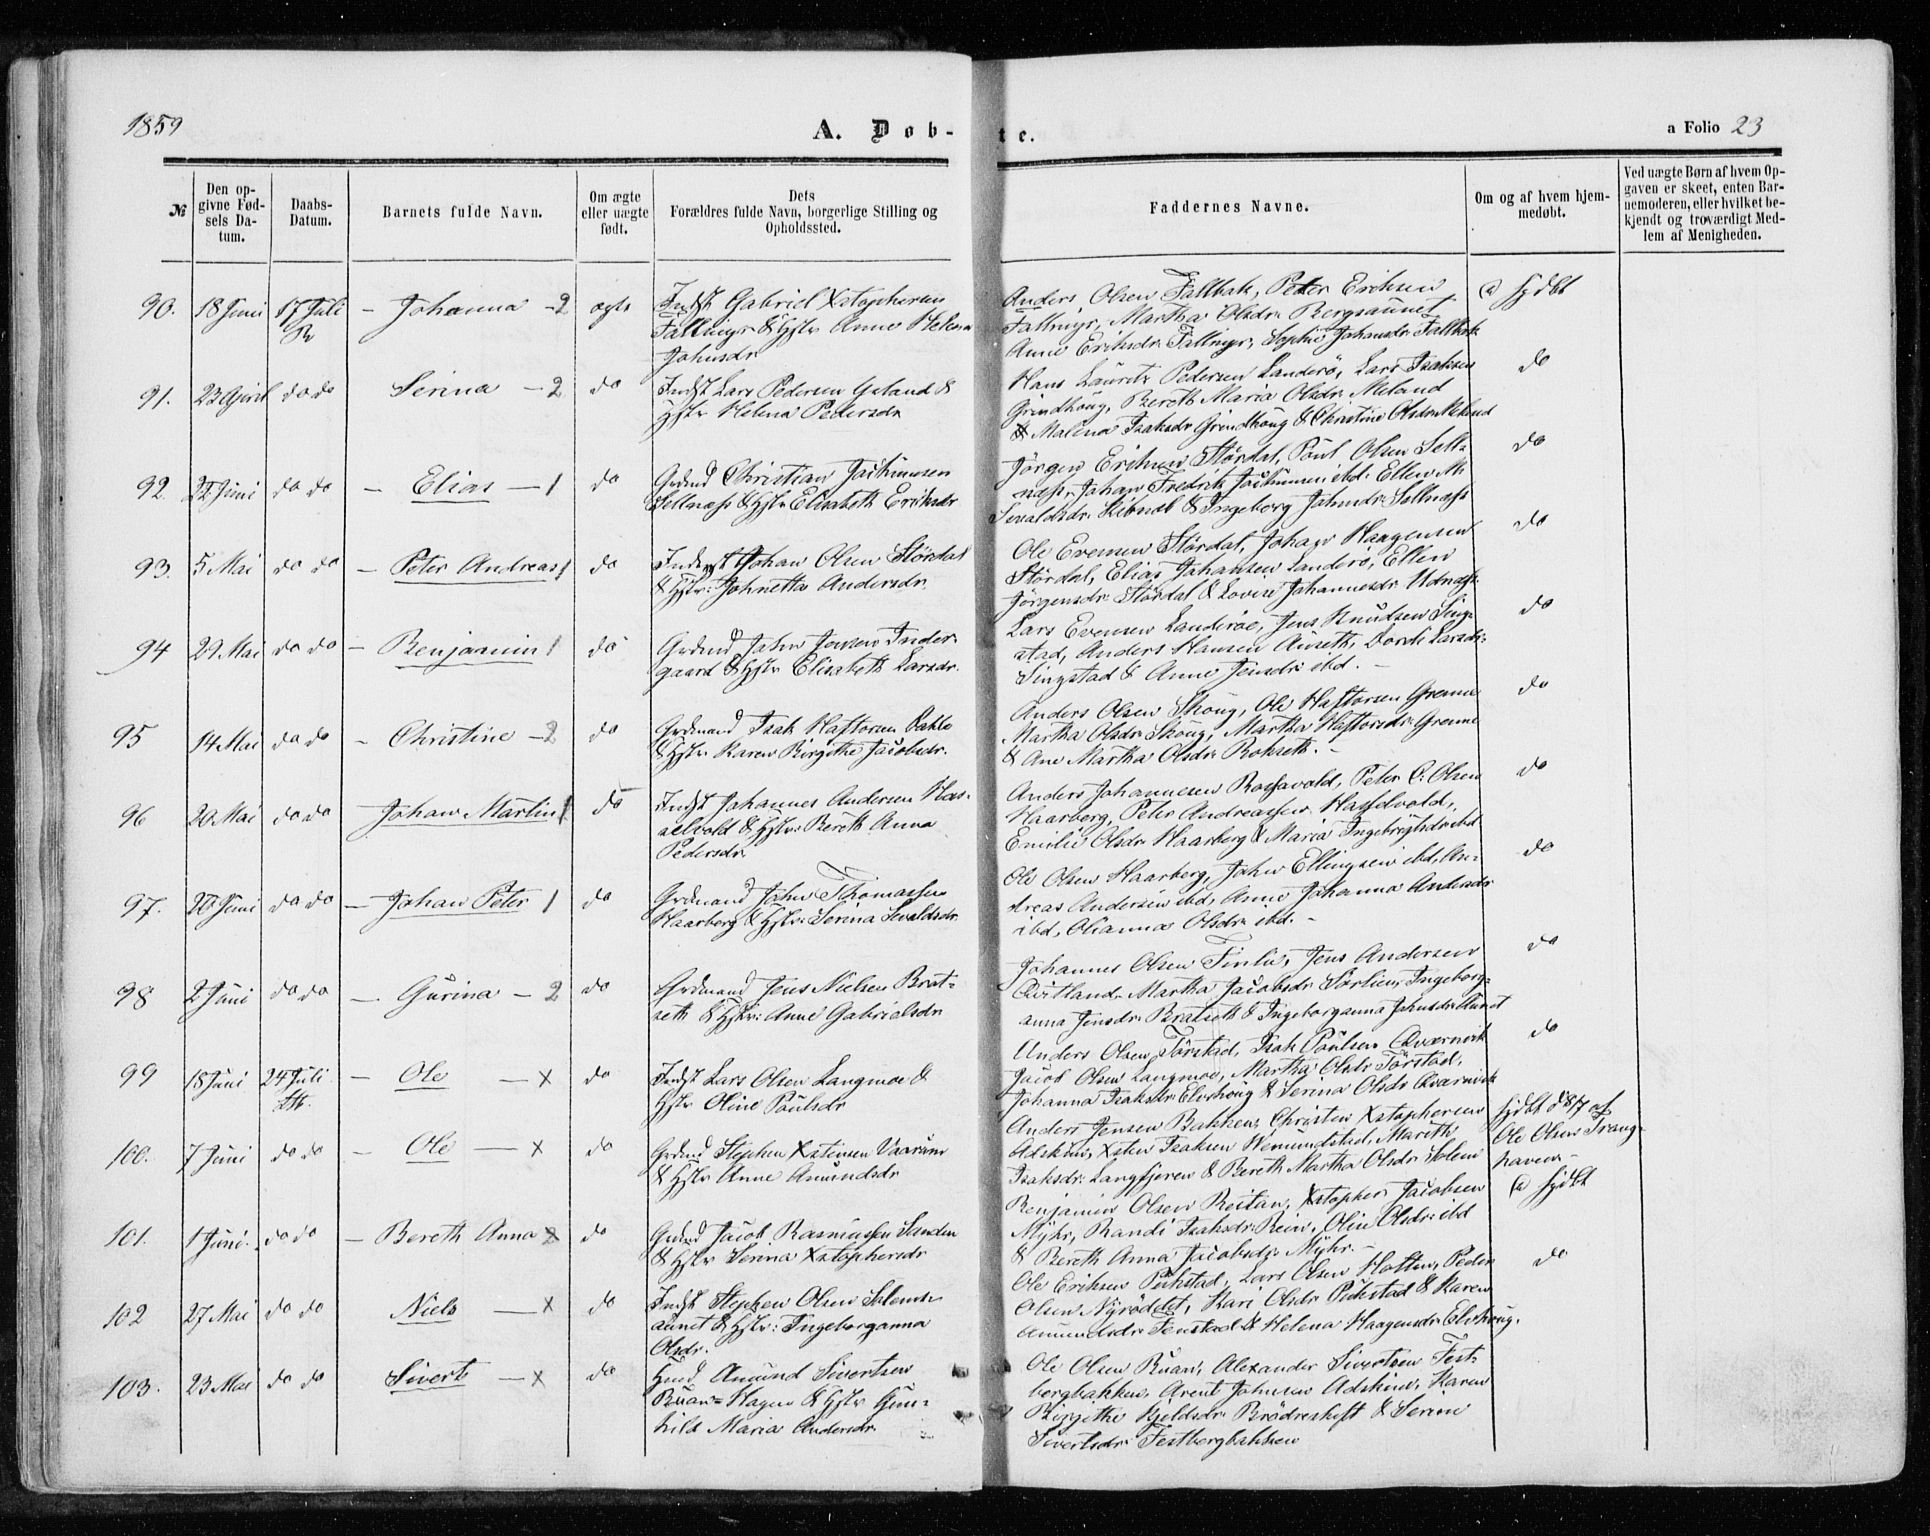 1859
A. Døb-
te.
a Folio 23
№
Den op-
givne Fød-
sels Da-
tum.
Daabs-
Datum.
Barnets fulde Navn.
Om ægte
eller uægte
født.
Dets
Forældres fulde Navn, borgerlige Stilling og
Opholdssted.
Faddernes Navne.
Om og af hvem hjem-
medøbt.
Ved uægte Børn af hvem Op-
gaven er skeet, enten Bar-
nemoderen, eller hvilket be-
kjendt og troværdigt Med-
lem af Menigheden.
90. 18 Juni 17 Juli – Johanna – 2 ægte
R
Indst Gabriel Xstophersen
Fallmyr & Hstr Anne Helena
Johnsdr
Anders Olsen Fallbak, Peter Eriksen
Fallmyr, Martha Olsdr: Bergsaunet
Anne Eriksdr Fallmyr, Sophie Johansdr Fallbak
hjdbt
91. 23 April do do Serina – 2 do
Indst Lars Pedersen &
Hstr Helena Pedersdr
Hans Lauritz Pedersen Landerö, Lars Isaksen
Grindhoug, Bereth Maria Olsdr: Meland
& Malena Isaksdr Grindhoug & Christine Olsdr Meland
do
92. 22 Juni do do – Elias – 1 do
Grdmd Christian Jachumsen
Sellnæss & Hstr Elisabeth Eriksdr
Jörgen Eriksen Stördal, Poul Olsen Sell-
næss, Johan Fredrik Jachumsen ibd. Ellen M.
Sivaldsdr. & Ingeborg Johnsdr: Sellnæss
do
93. 5 Mai do do – Peter Andreas 1 do
Inderst Johan Olsen Stördal
& Hstr: Johnetta Andersdr.
Ole Evensen Stördal, Johan Haagensen
Stördal, Elias Johansen Landerö, Ellen
Jörgensdr Stördal & Lovise Johannesdr Udnæss.
do
94 29 Mai do do – Benjamin 1 do
Grdmd John Jensen Inder-
gaard & Hstr Elisabeth Larsdr.
Lars Evensen Landeröe, Jens Knudsen Sing-
stad, Anders Hansen Auseth, Dorth Larsdr:
Singstad & Anne Jensdr ibd. –
do
95 14 Mai do do – Christine – 2 do
Grdmand Isak Haftorsen Bakke
& Hstr Karen Birgithe Jacobsdr.
Anders Olsen Skoug, Ole Haftorsen Grenne
Martha Olsdr Skoug, Martha Haftorsdr: Grenne
& Ane Martha Olsdr Rokseth. –
do
96 20 Mai do do – Johan Martin 1 do
Indst Johannes Andersen Has-
selvold & Hstr: Bereth Anna
Pedersdr
Anders Johannesen Rossavold, Peter C. Olsen
Haarberg, Peter Andreassen Hasselvold,
Emilie Olsdr Haarberg & Maria Ingebrigtsdr ibd
do
97. 20 Juni do do – Johan Peter 1 do
Grdmand John Thomassen
Haarberg & Hstr: Serina Sivaldsdr.
Ole Olsen Haarberg, John Ellingsen ibd, An-
dreas Andersen ibd, Anne Johanna Andersdr
ibd, Olianna Olsdr ibd. –
do
98 2 Juni do do – Gurina – 2 do
Grdmand Jens Nielsen Brat-
seth & Hstr: Anne Gabrielsdr
Johannes Olsen Finlie, Jens Andersen
Qvitland, Martha Jacobsdr Sörlien, Ingeborg-
anna Jensdr: Bratseth & Ingeborganna Johnsdr Aunet
do
99 18 Juni 24 Juli – Ole – x do
Indst Lars Olsen Langmoe &
Hstr Oline Poulsdr
Anders Olsen Törstad, Isak Poulsen Qværnvik
Jacob Olsen Langmoe, Martha Olsdr Törstad,
Johanna Isaksdr Elvehoug & Serina Olsdr Qværnvik
do
100. 7 Juni do do – Ole – x do
Grdmd Stephen Xstensen
& Hstr Anne Amundsdr
Anders Jensen Bakken, Christen Xstophersen
Adskin, Xsten Isaksen Wemundstad, Mareth
Isaksdr: Langfjeren & Bereth Martha Olsdr Solem
hjdbt d 8/7 af
Ole Olsen Trang-
haven –
101. 1 Juni do do – Bereth Anna 2 do
Grdmd Jacob Rasmussen Sanden
& Hstr Serina Xstophersdr
Benjamin Olsen Reitan, Xstopher Jacobsen
Myhr, Randi Isaksdr Rein, Oline Olsdr ibd
& Bereth Anna Jacobsdr Myhr. –
hjdbt
102 27 Mai do do Niels – x do
Indst Stephen Olsen Solems-
aunet & Hstr: Ingeborganna
Olsdr.
Ole Eriksen Pukstad, Lars Olsen Holten, Peder
Olsen Nyröddet, Kari Olsdr Pukstad & Karen
Amundsdr Fenstad & Helena Haagensdr Elvehoug.
do
103. 23 Mai do do Sivert – x do
Husmd Amund Sivertsen
Ruan-Hagen & Hstr Gun-
hild Maria Andersdr
Ole Olsen Ruan, Alexander Sivertsen Fest-
bergbakken, Arent Johnsen Adskin, Karen
Birgithe Kjeldsdr Brödreskift & Serine
Sivertsdr: Festbergbakken